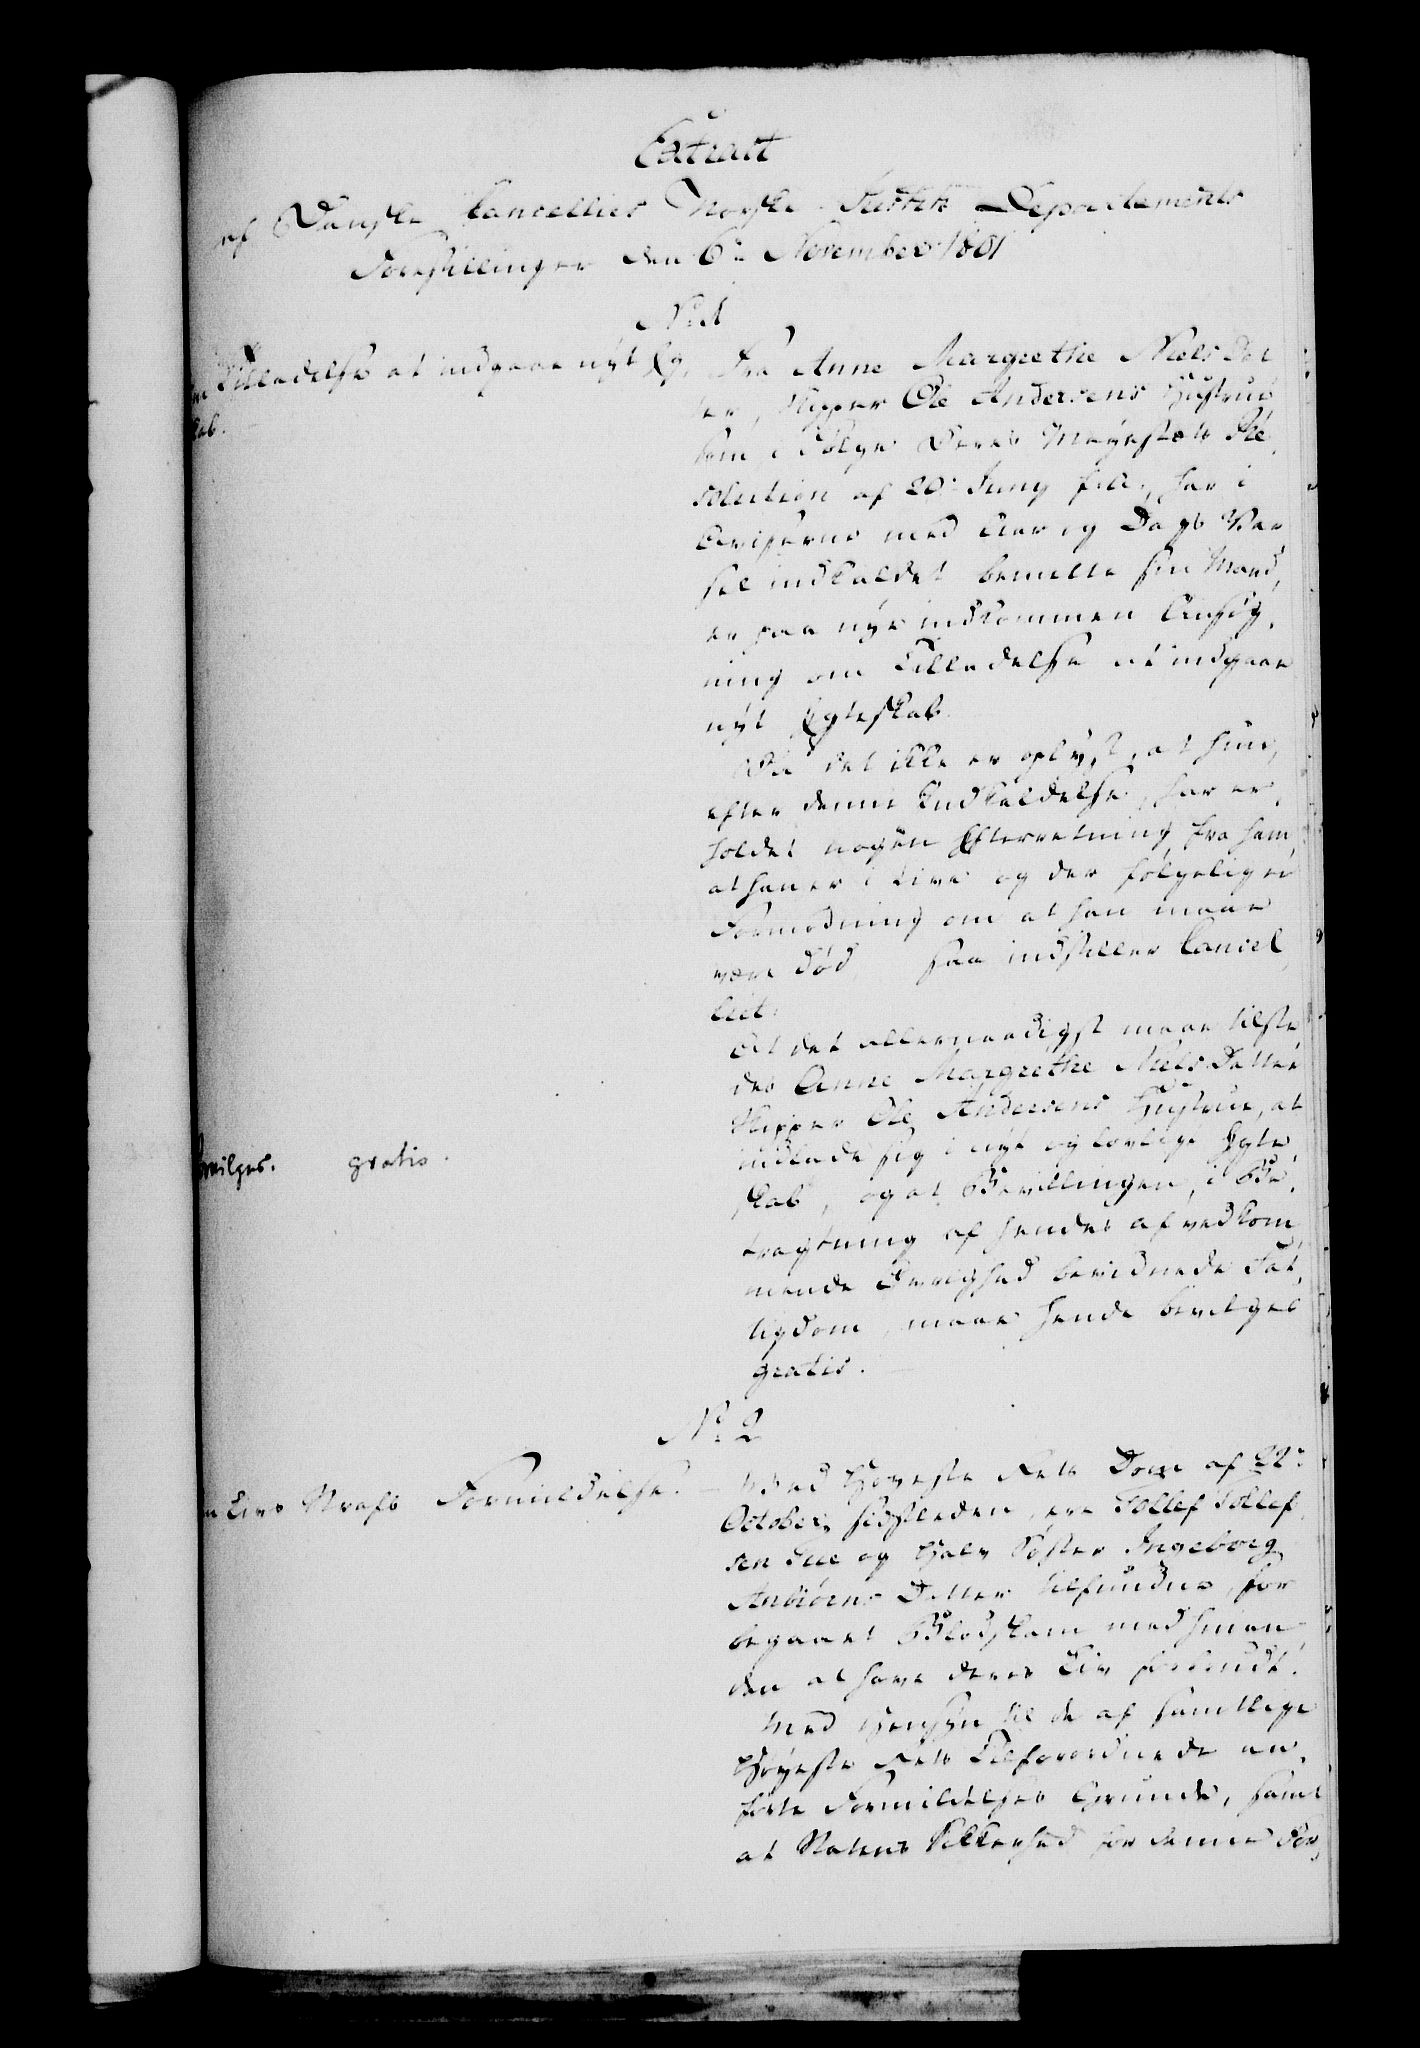 Extract
af Danske Cancellies Norske Justits Departements
Forestillinger den 6te November 1801
No 1
Tilladelse at indgaae nyt Eg-
skab.
Fra Anne Margrethe Niels Dat
ter, Skipper Ole Andersens Hustrue
som i Følge Deres Mayestæts Re
solution af 20de Juny f. A., har i
Aviserne med Aar og Dags Var
sel indkaldet bemelte sin Mand,
er paa nye indkommen Ansøg-
ning om Tilladelse at indgaae
nyt Egteskab.
Da det ikke er oplyst, at hun,
efter denne Indkaldelse, har er-
holdet nogen Efterretning fra ham,
at han er i Live og der følgelig er
Formodning om at han maae
være død, saa indstiller Cancel
liet:
At det allernaadigst maae tilste
des Anne Margrethe Niels Datter
Skipper Ole Andersens Hustrue, at
indlade sig i nyt og lovligt Egte-
skab, og at Bevillingen, i Be-
tragtning af hendes af vedkom
mende Øvrighed bevidnede Fat-
tigdom, maae hende bevilges
gratis.
Bevilges. gratis.
No 2
Livs Strafs Formildelse.
Ved Høyeste Rets Dom af 22de
October sidstleden, ere Tollef Tollef
sen og Halv Søster Ingeborg
Anbiørns Datter tilfundne, for
begaaet Blodskam med hinan
den at have deres Liv forbrudt.
Med Hensyn til de af samtlige
Høyeste Rets Tilforordnede an-
førte Formildelses Grunde, samt
at Statens Sikkerhed for denne For-